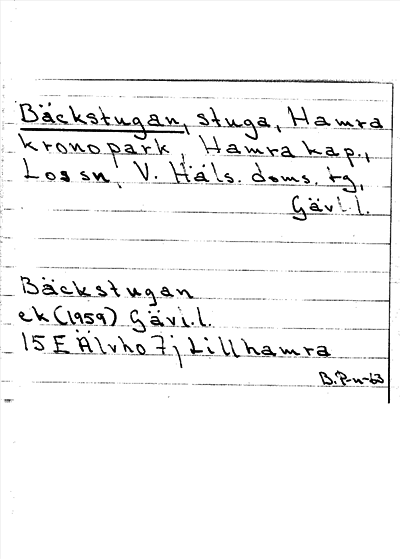 Bäckstugan, stuga, Hamra
kronopark, Hamra kap.,
Los sn, V. Häls. doms. tg,
Gävl.l.
Bäckstugan
ek (1959) Gävl.l.
15E Älvho 7j Lillhamra
B.P-n-63